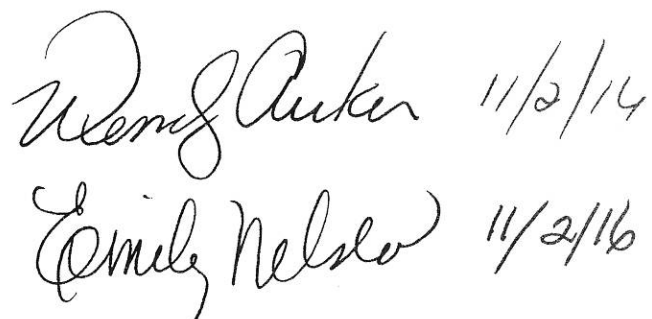 Wendy Auker 11/2/16
Emily Nelson 11/2/16